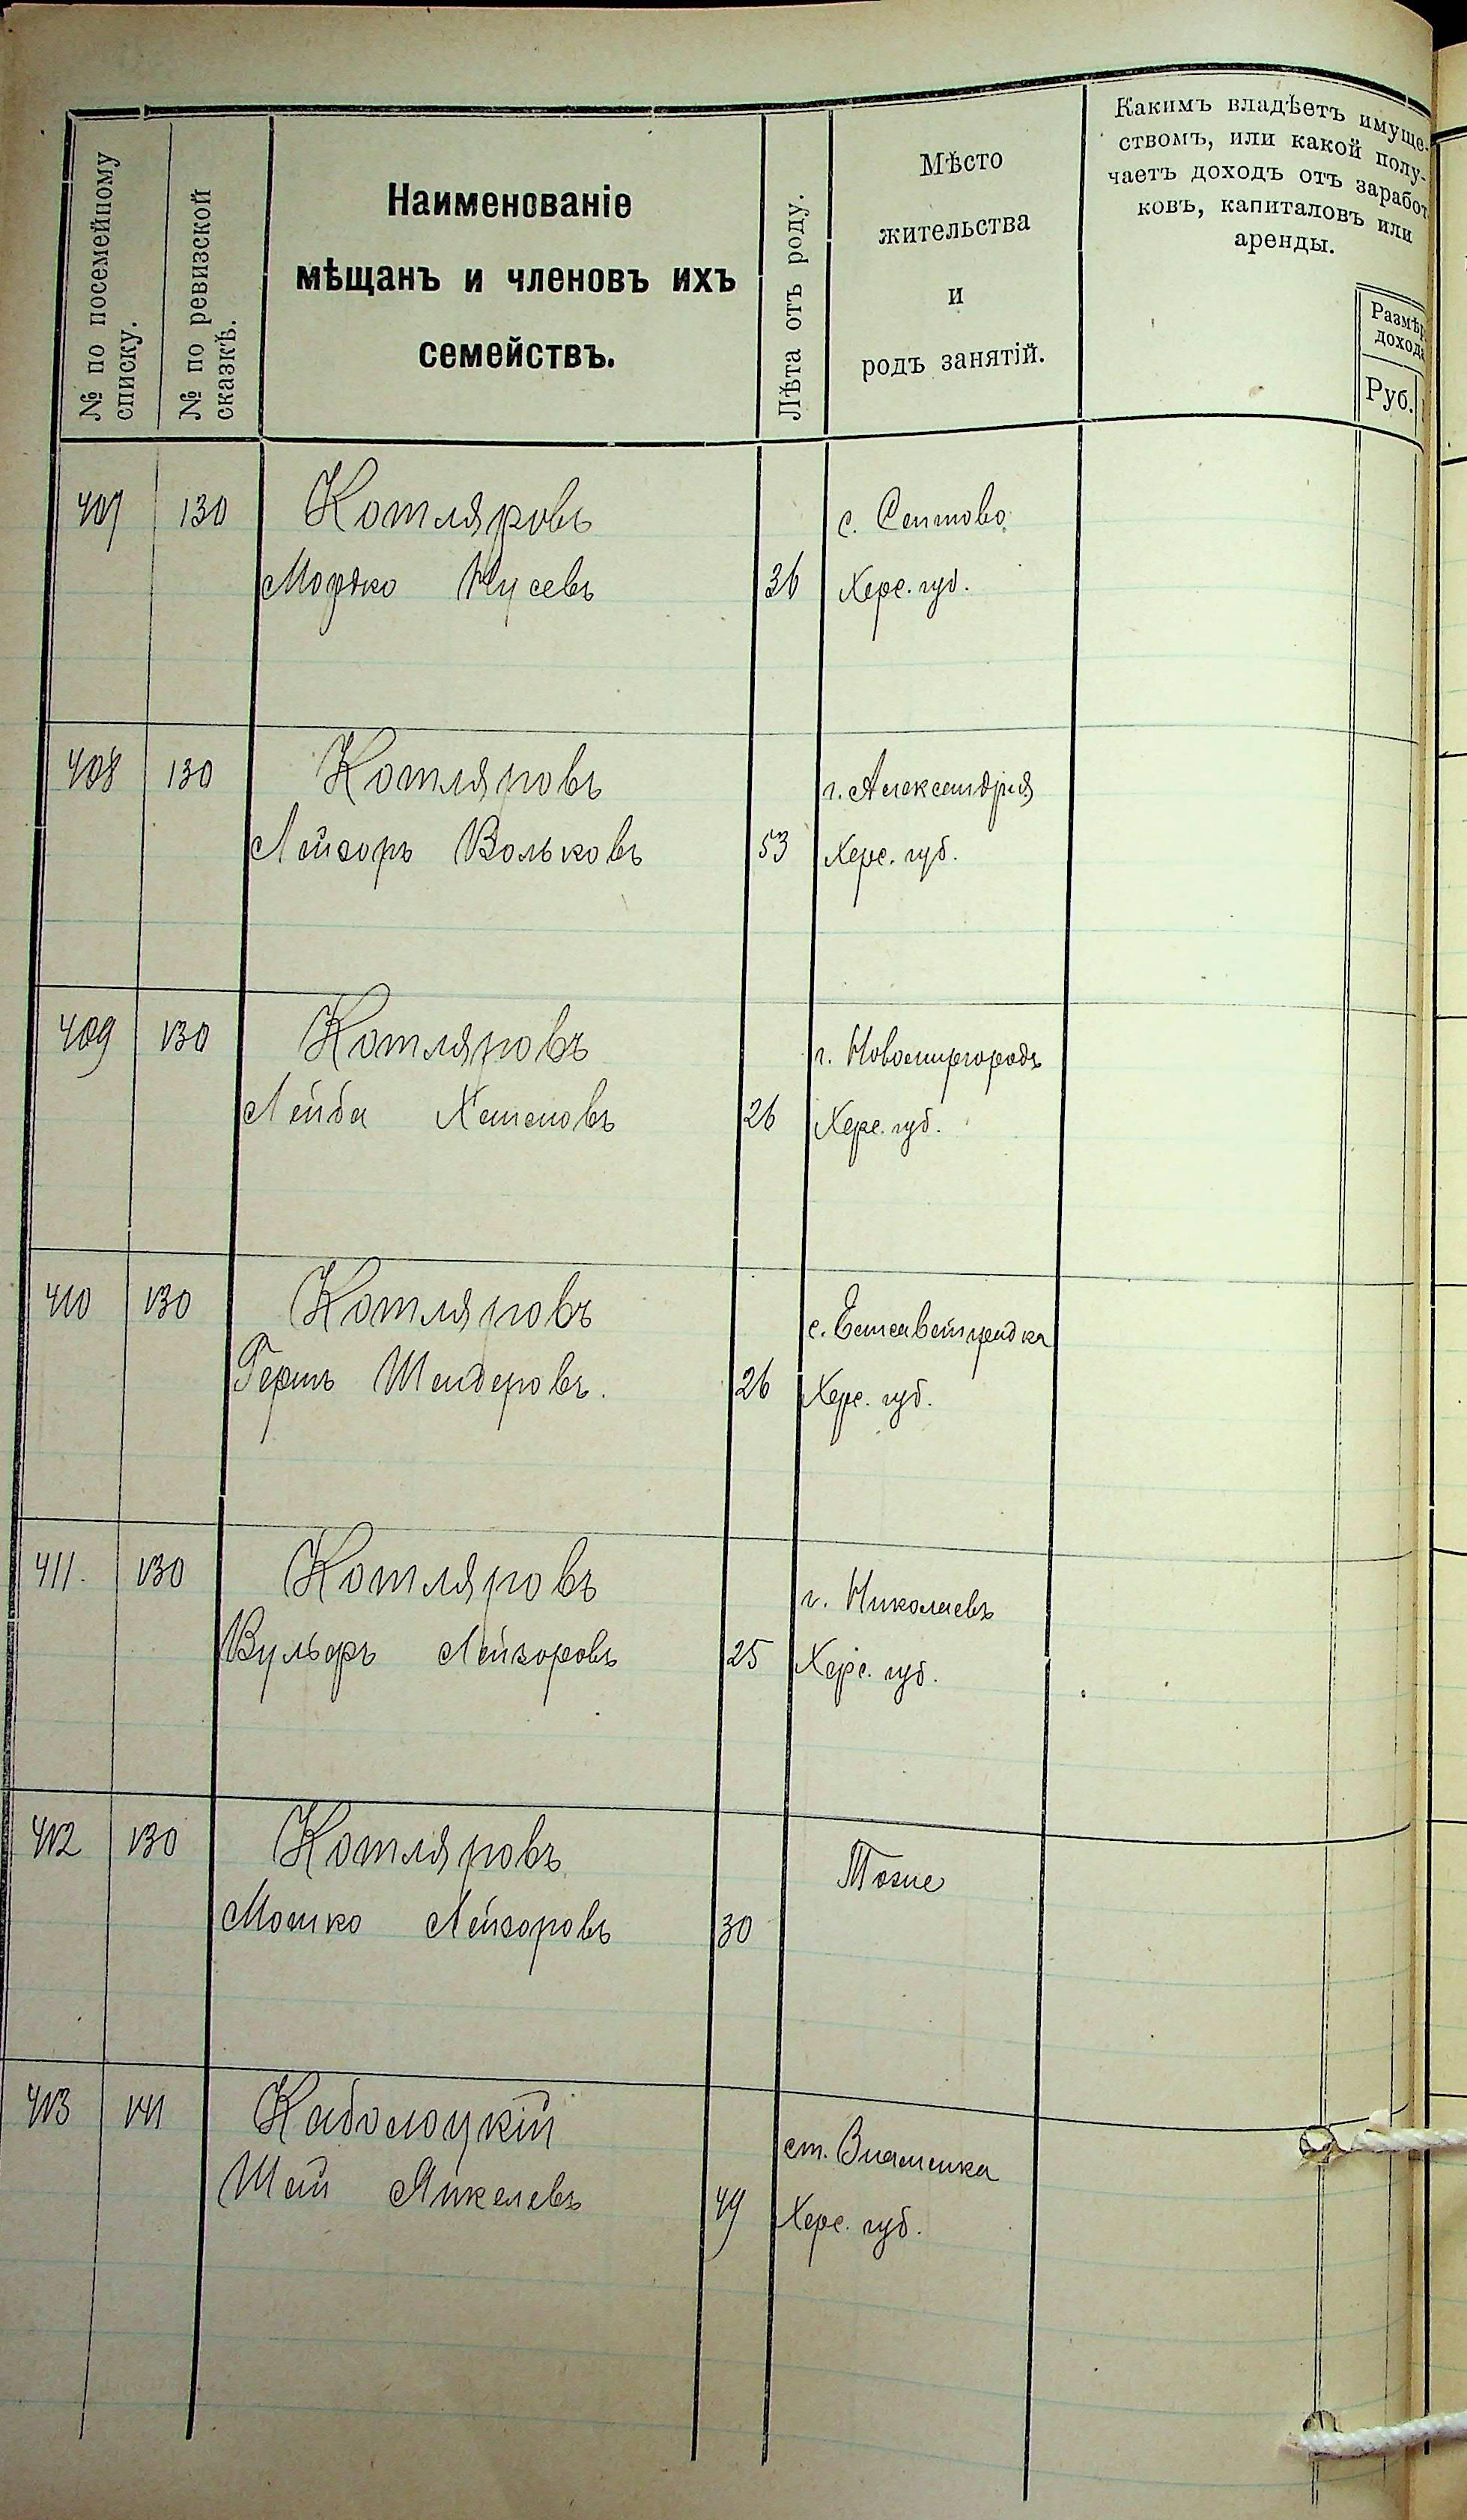 № по посемейному
списку.
№ по ревизской
сказкѣ.
Наименованіе
мѣщанъ и членовъ ихъ
семействъ.
Лѣта отъ роду.
Мѣсто
жительства
и
родъ занятій.
Какимъ владѣетъ имуще-
ствомъ, или какой полу-
чаетъ доходъ отъ заработ
ковъ, капиталовъ или
аренды.
Размѣр
дохода
Руб.
407 130 Котляровъ с. Сентово
Мордко Нусевъ 36 Херс. губ.
408 130 Котляровъ г. Александрія
Лейзоръ Вольковъ 53 Херс. губ.
409 130 Котляровъ г. Новомиргородъ
Лейба 26 Херс. губ.
410 130 Котляровъ с. Елисаветградка
Гершъ Шендеровъ. 26 Херс. губ.
411. 130 Котляровъ г. Николаевъ
Вульфъ Лейзоровъ 25 Херс. губ.
412 130 Котляровъ Тоже
Мошко Лейзоровъ 30
413 141 Каболоцкій ст. Знаменка
Шай Янкелевъ 49 Херс. губ.